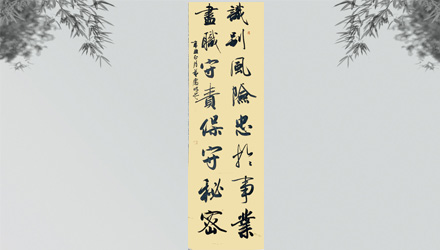 識別風險忠於事業
盡職守責保守秘密